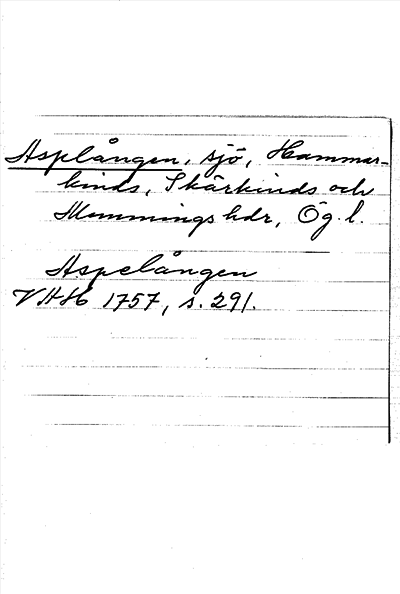 Asplången, sjö, Hammar-
kinds, Skärkinds och
Memmings hdr, Ög. l.
Aspelången
VAH 1757, s. 291.